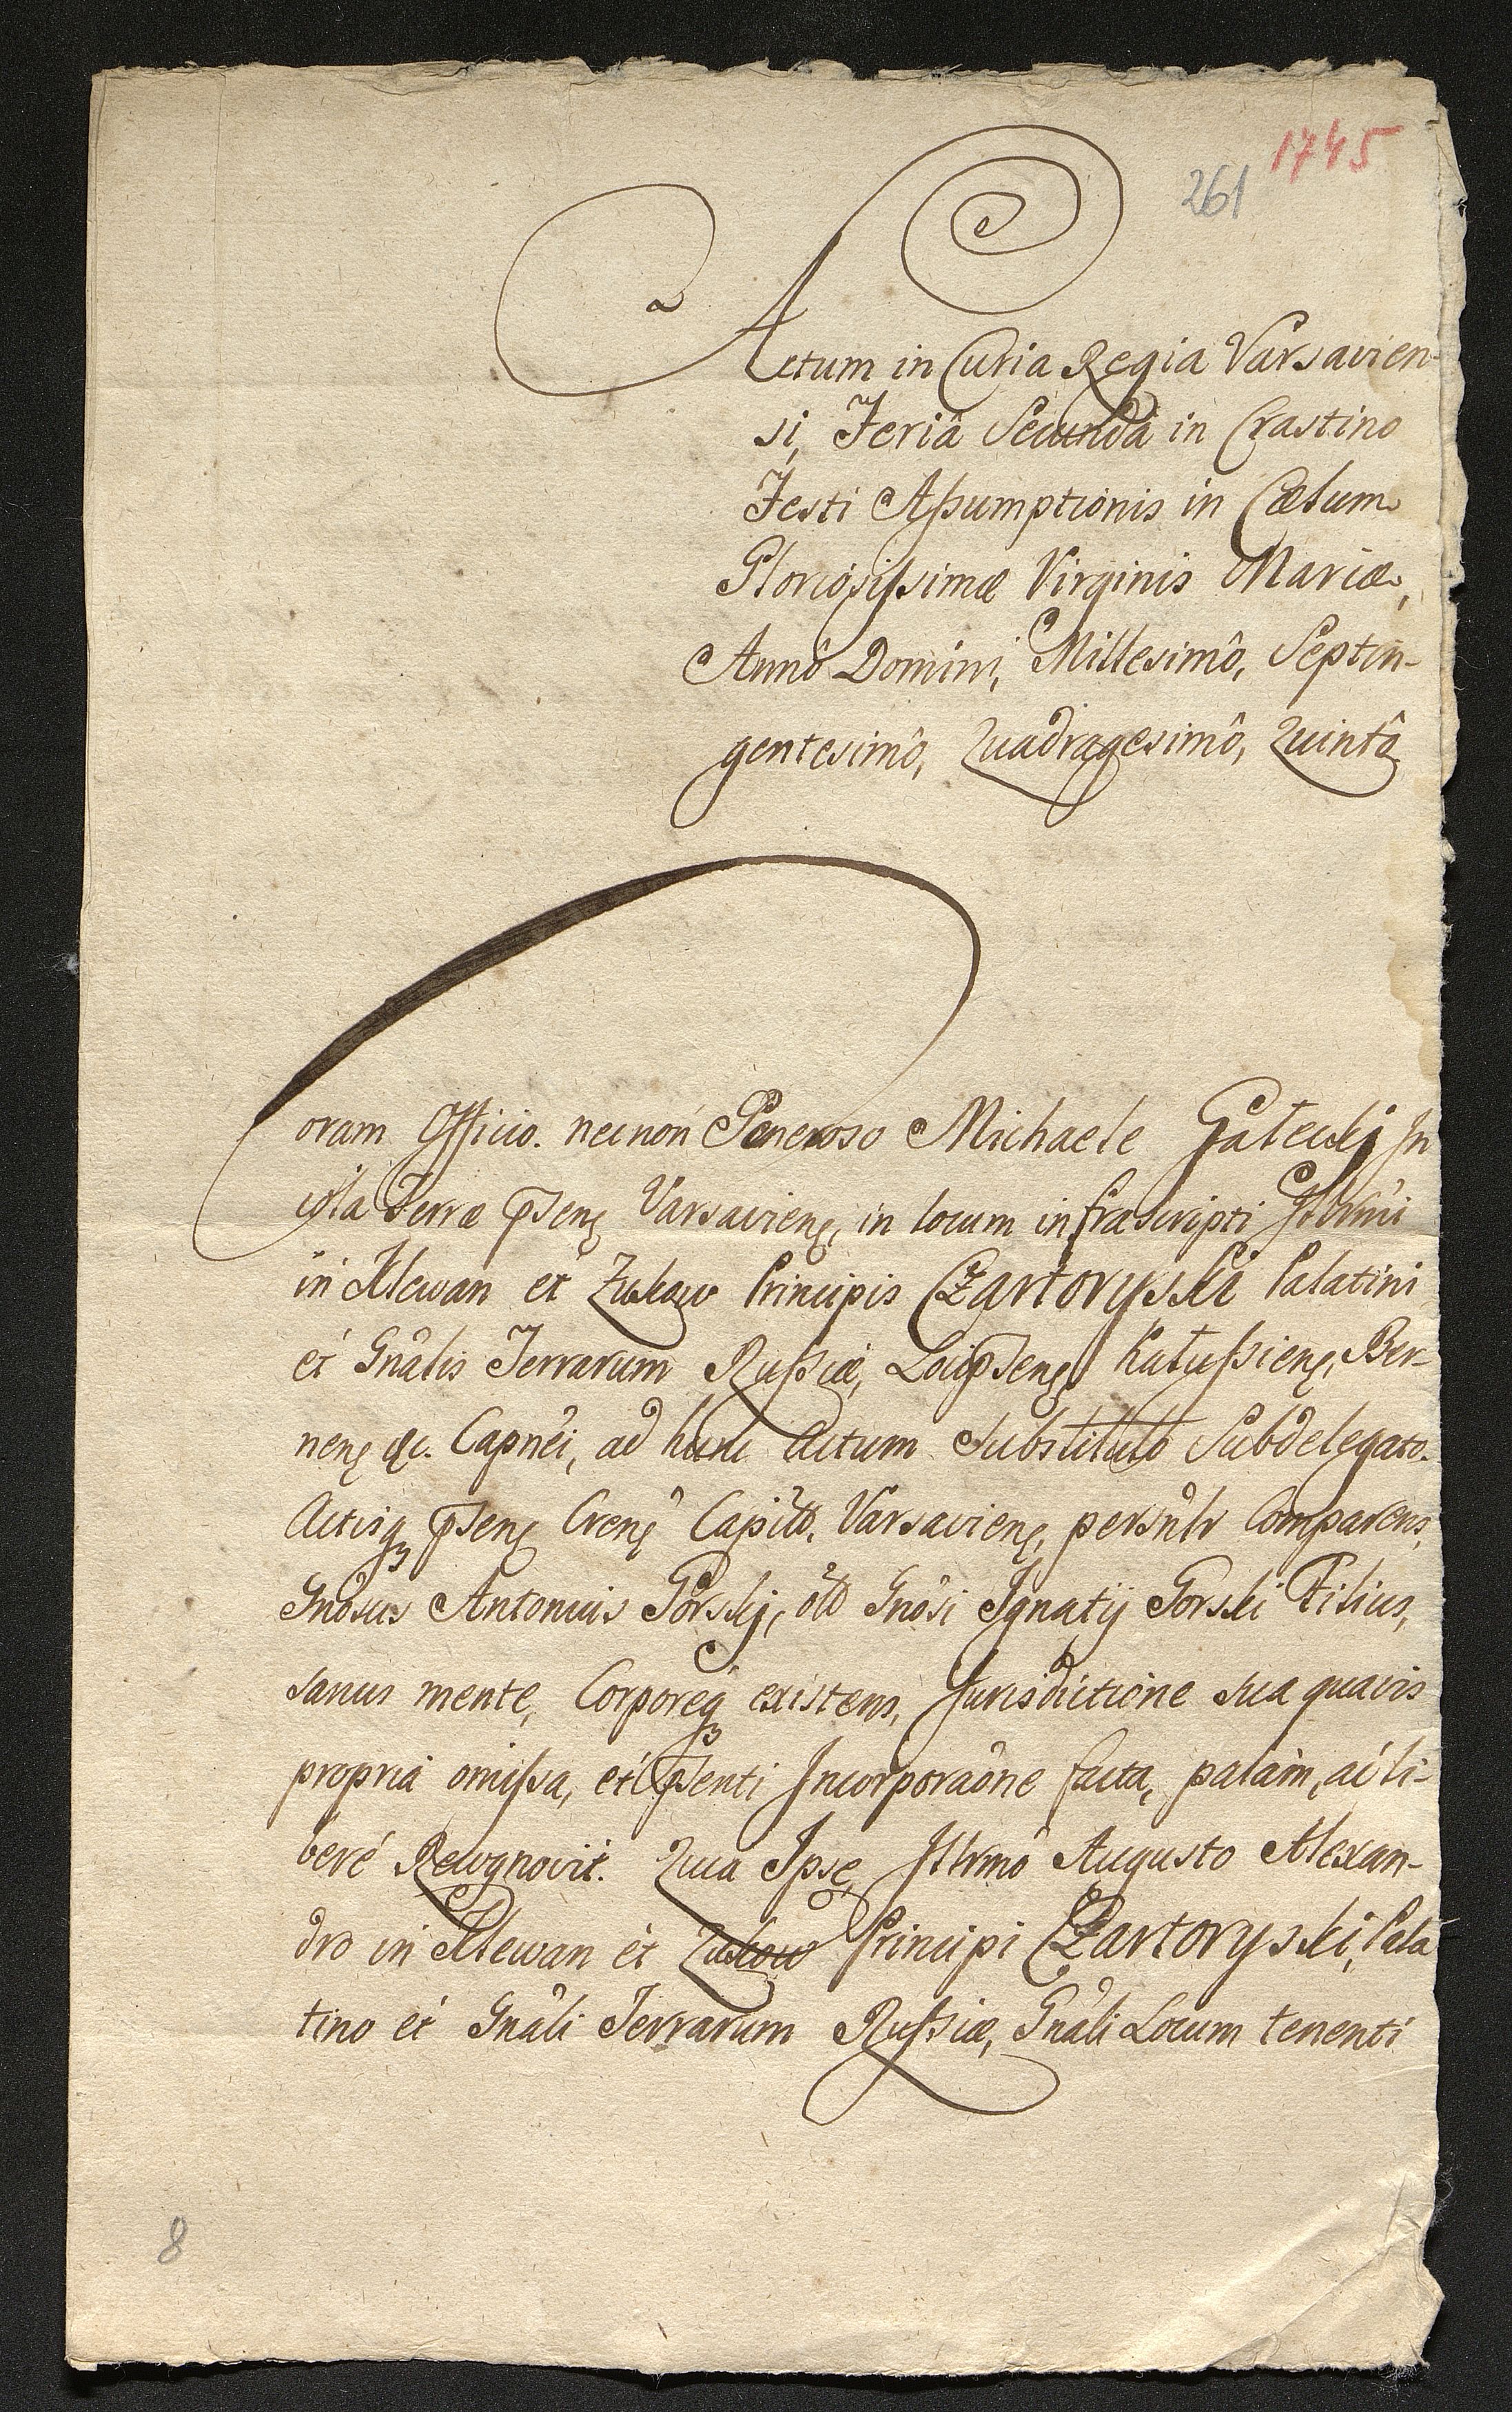 1745
261
Actum in Curia Regia Varsavien-
si, Feriâ Secundâ in Crastino
Festi Assumptionis in Cælum
Gloriosissimæ Virginis Mariæ,
Annô Domini, Millesimô, Septin-
gentesimô, Quadragesimô, Quintô
Coram Officio. nec non Generoso Michaele Gałecki In
cola Terræ pñsenę Varsavienę, in locum infrascripti Illrmi
in Klewan et Zukow Principis CZartoryski Palatini
et Gnâlis Terrarum Russiæ, Kałussienę, Ber-
nenę &c. Capnei, ad hunc Actum Substituto Subdelegato.
Actisq3 pñsenę Crenę Capitt. Varsavienę, persnlr Comparens,
Gnosus Antonius Gorskj, olo Gnosi Ignatij Gorski Filius,
sanus mente, Corporeq3 existens, Jurisdictione sua quavis
propriâ omissa, et pñsenti Incorporaône facta, palàm, ac li-
berè Recognovit. Quia Ipse, Illrmo Augusto Alexan-
dro in Klewan et Zukow Principi CZartoryski, Pala
tino et Gnâli Terrarum Russiæ, Gnâli Locum tenenti
8